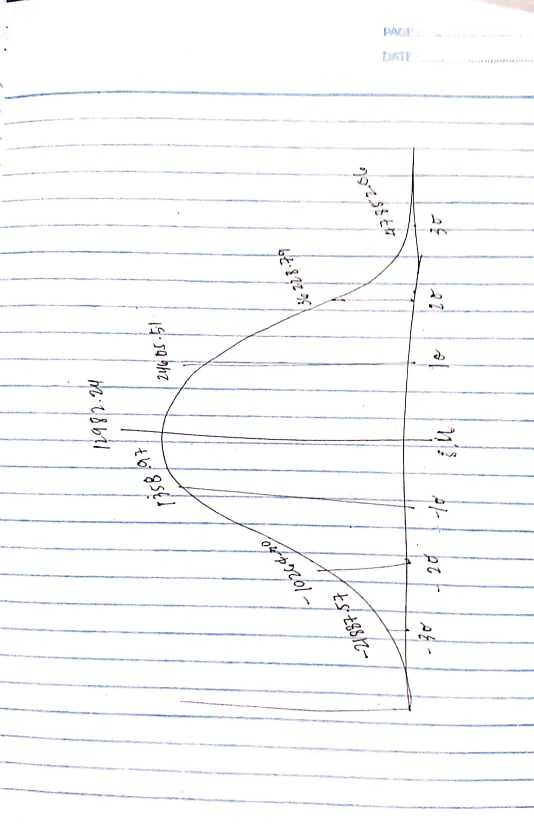 12982.24
1358.97
24605.51
-10264.30
36228.79
-21887.57
47852.06
-3σ
-2σ
-1σ
μ
1σ
2σ
3σ
PAGE:
DATE: